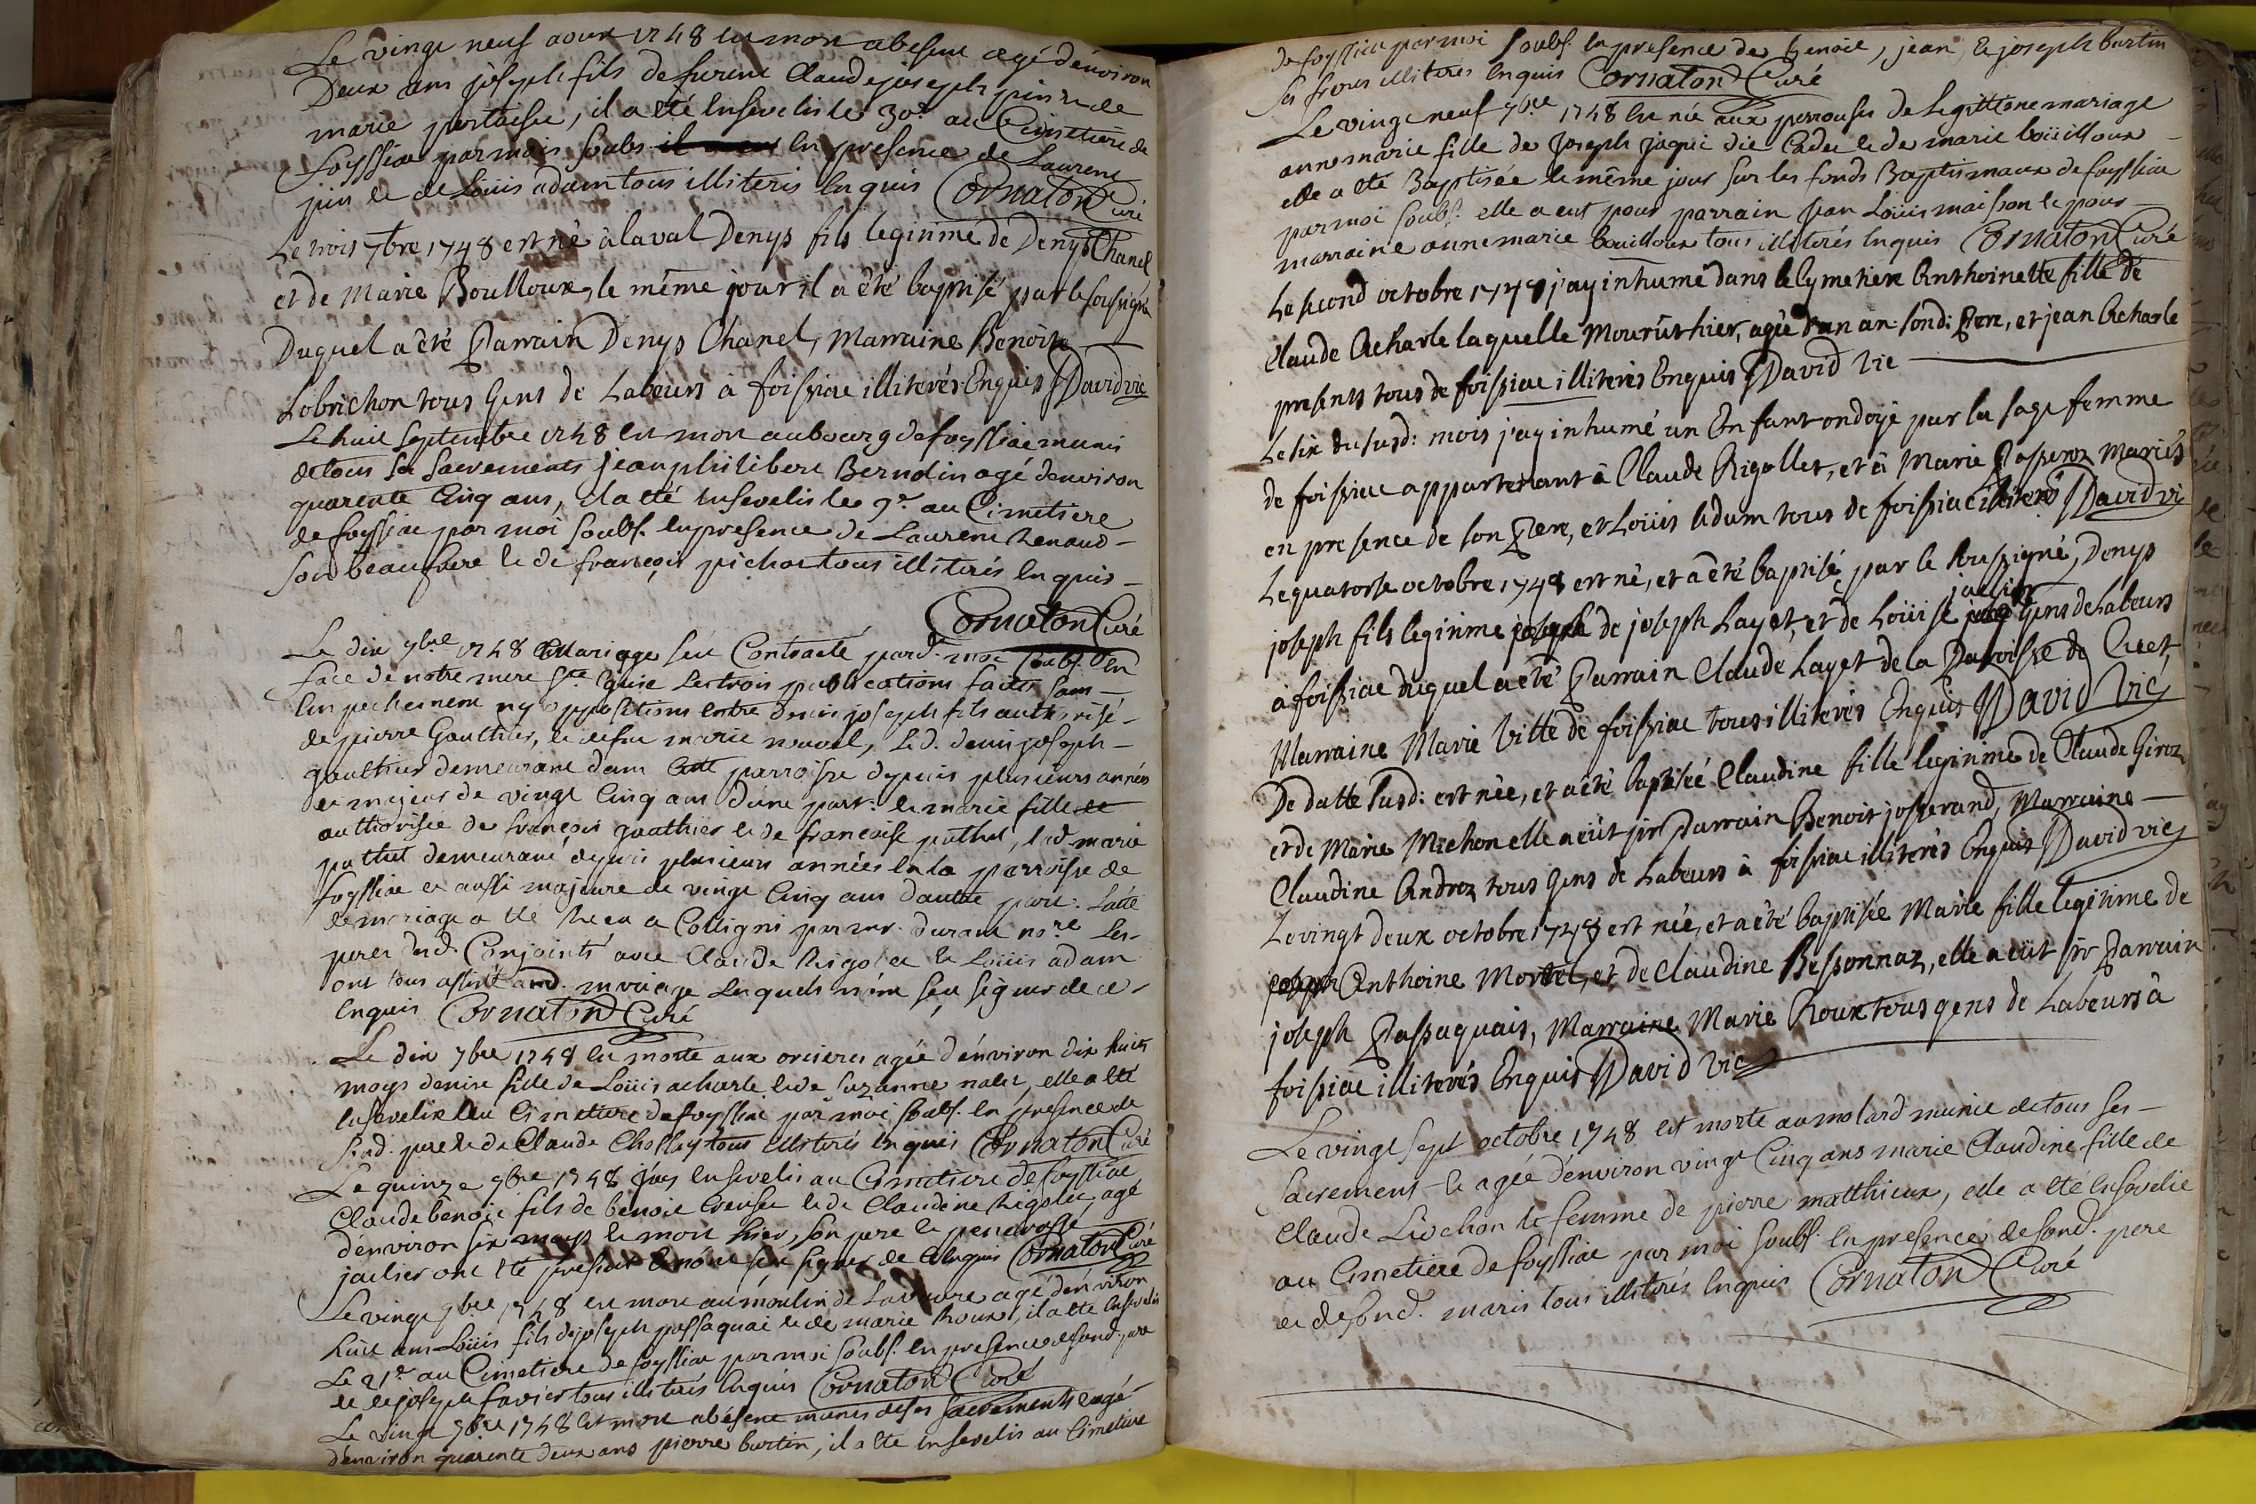 Le vingt neuf aoust 1748 est mort abesene agé d'environ
Deux ans joseph fils de furent Claude joseph pin et de
marie pertaisse, il a eté Ensevelis le 30e au Cimetiere de
foyssiac par moi soubs. En presence de Laurent
pin et de Loüis adam tous illiterés Enquis Cornaton Curé
Le trois 7bre 1748 est né à laval Denys fils legitime de Denys Chanel
et de Marie Boulloux, le même jour il a été baptisé par le soussigné
Duquel a été Parrain Denys Chanel, Marraine Benoite
Lobrichon tous Gens de Labeurs à foissiac illiterés Enquis David vic
Le huit septembre 1748 Est mort au bourg de foyssiac munis
de tous ses sacrements jean philibert Berodin agé d'environ
quarente Cinq ans, il a eté Ensevelis le 9e au Cimetiere
de foyssiac par moi soubs. En presence de Laurent Renaud
son beaufrere et de françois pichat tous illiterés Enquis
Cornaton Curé
Le dix 7bre 1748 Mariage feu Contracté pard. moi soubs. En
face de notre mere Ste Eglise Les trois publications faites sans
Empechement ny oppositions entre denis joseph fils authorisé
de pierre Gauthier, et de fue marie nouvel, Led. denis joseph
gauthier demeurant dans Cette parroisse depuis plusieurs années
et majeur de vingt Cinq ans d'une part: et marie fille
authorisée de françois gauthier et de francoise pathet, lad. marie
pathet demeurant depuis plusieurs années En la parroisse de
foyssiac et aussi majeure de vingt Cinq ans d'autre part: L'acte
de mariage a eté Receu a Colligni par mr. durand nore Les
peres desd. Conjoints avec Claude Rigolet et Loüis adam
ont tous assisté aud. mariage Lesquels n'ont sçu signer de ce
Enquis Cornaton Curé
Le dix 7bre 1748 Est morte aux orcieres agée d'environ dix huit
moys denise fille de Loüis acharle et de suzanne nalet, elle a eté
Ensevelie Au Cimetiere de foyssiac par moi soubs. En presence de
sond. pere et de Claude Chollay tous illiterés Enquis Cornaton Curé
Le quinze 7bre 1748 j'ay Ensevelis au Cimetiere de foyssiac
Claude benoit fils de benoit Creuset et de Claudine Rigolet agé
d'environ six moys et mort hier, son pere et
jaclier ont eté presents Et n'ont sçu signer de ce Enquis Cornaton Curé
Le vingt 7bre 1748 est mort au moulin de Lavaure agé d'environ
huit ans Loüis fils de joseph passaquai et de marie Roux, il a eté Ensevelis
Le 21e au Cimetiere de foyssiac par moi soubs. En presence de sond. pere
et de joseph favier tous illiterés Enquis Cornaton Curé
Le vingt 7bre 1748 Est mort abésene munis de ses sacrements Et agé
d'environ quarente deux ans pierre burtin, il a eté Ensevelis au Cimetiere
de foyssiac par moi soubs. En presence de benoit, jean, et joseph burtin
ses freres illiterés Enquis Cornaton Curé
Le vingt neuf 7bre 1748 Est née aux perrouses de Legittime mariage
anne marie fille de Joseph jaquet dit Cadet et de marie boüilloux
elle a eté Baptisée le même jour sur les fonds Baptismaux de foyssiac
par moi soubs. elle a eut pour parrain jean Loüis maisson et pour
marraine anne marie bouilloux tous illiterés Enquis Cornaton Curé
Le second octobre 1748 j'ay inhumé dans le Cymetiere Anthoinette fille de
Claude Acharle laquelle Mourût hier, agée d'un an sond: Pere, et jean Acharle
presents tous de foissiac illiterés Enquis David vic
Le six du susd: mois j'ay inhumé un Enfant ondoyé par la sage femme
de foissiac appartenant à Claude Rigollet, et à Marie Passeroz Mariés
en presence de son Pere, et Loüis Adam tous de foissiac illiterés David vic
Le quatorse octobre 1748 est né, et a été baptisé par le soussigné, Denys
joseph fils legitime de joseph Layet, et de Loüise jaclier Gens de Labeurs
à foissiac duquel a été Parrain Claude Layet de la Paroisse de Cuet,
Marraine Marie Vitte de foissiac tous illiterés Enquis David Vic
De datte susd: est née, et a été baptisée Claudine fille legitime de Claude Giroz
et de Marie Michon elle a eüt pr Parrain Benoit josserand, Marraine
Claudine Andrez tous Gens de Labeurs à foissiac illiterés Enquis David vic
Le vingt deux octobre 1748 est née, et a été baptisée Marie fille legitime de
Anthoine Mortel, et de Claudine Bessonnaz, elle a eüt pr Parrain
joseph Passaquais, Marraine Marie Roux tous gens de Labeurs à
foissiac illiterés Enquis David Vic
Le vingt sept octobre 1748 est morte au molard munie de tous ses
sacrements et agée d'environ vingt Cinq ans marie Claudine fille de
Claude Liochon et femme de pierre matthieux, elle a eté Ensevelie
au Cimetiere de foyssiac par moi soubs. En presence de sond. pere
et de sond. maris tous illiterés Enquis Cornaton Curé